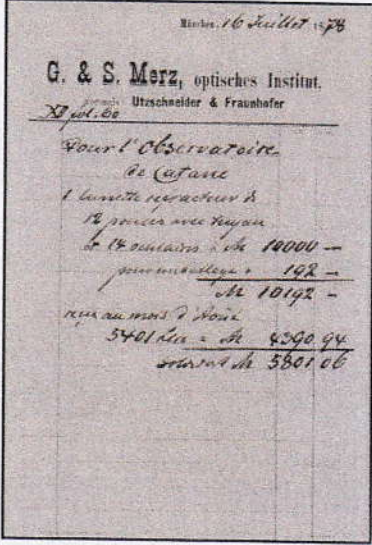 München, 16 Juillet 1878
G. & S. Merz, optisches Institut.
Utzschneider & Fraunhofer
XI fol. 60
Pour l'Observatoire
de Catane
1 lunette réfracteur de
12 pouces avec tuyau
et 14 oculaires à M 10000 —
192 —
M 10192 —
au mois d'
5401 = M 4390 94
M 5801 06